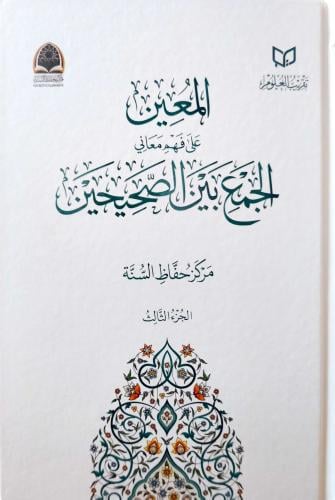 تقريب العلوم
المُعِين
عَلَى فَهْمِ مَعَانِي
الجَمْعِ بَيْنَ الصَّحِيحَيْنِ
مَرْكَز حُفَّاظ السُّنَّة
الجُزْءُ الثَّالِثُ